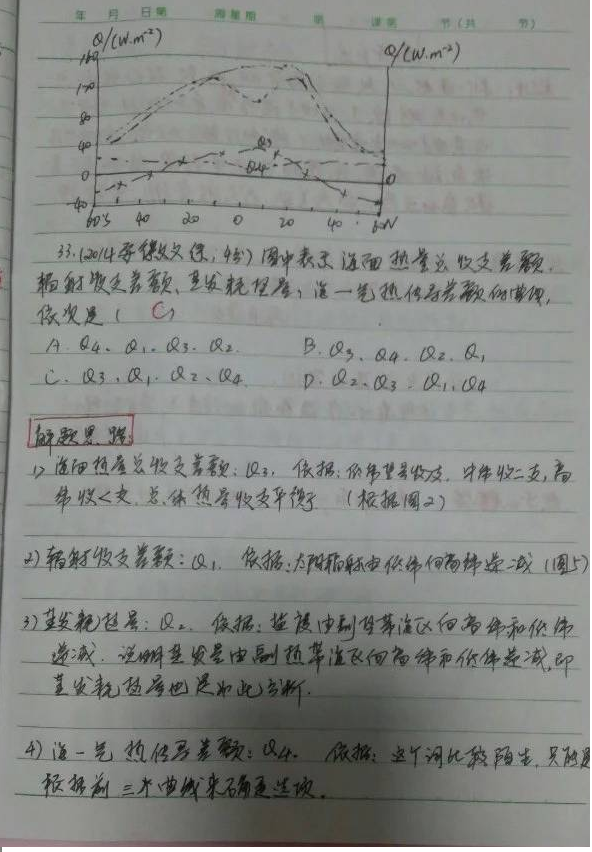 年 月 日 星期 第 课第 节(共 节)
Q/(W.m⁻²) Q/(W.m⁻²)
160
120
80
40
0 0
-40
Q3
Q4
60°S 40 20 0 20 40 60°N
33.(2014 4分)图中表示海面热量总收支差额、
辐射收支差额、蒸发耗热量、海一气热传导差额的曲线,
依次是( C )
A. Q4、Q1、Q3、Q2 B. Q3、Q4、Q2、Q1
C. Q3、Q1、Q2、Q4 D. Q2、Q3、Q1、Q4
解题思路
1) 海面热量总收支差额:Q3. 依据:低纬热量收>支,中纬收=支,高
纬收<支.总体热量收支平衡 (根据图2)
2) 辐射收支差额:Q1. 依据:太阳辐射由低纬向高纬递减(图5)
3) 蒸发耗热量:Q2. 依据:盐度由副热带海区向高纬和低纬
递减.说明蒸发量由副热带海区向高纬和低纬递减,即
蒸发耗热量也是如此分析.
4) 海一气热传导差额:Q4. 依据:这个词比较陌生,只能是
根据前三个曲线来确定选项.